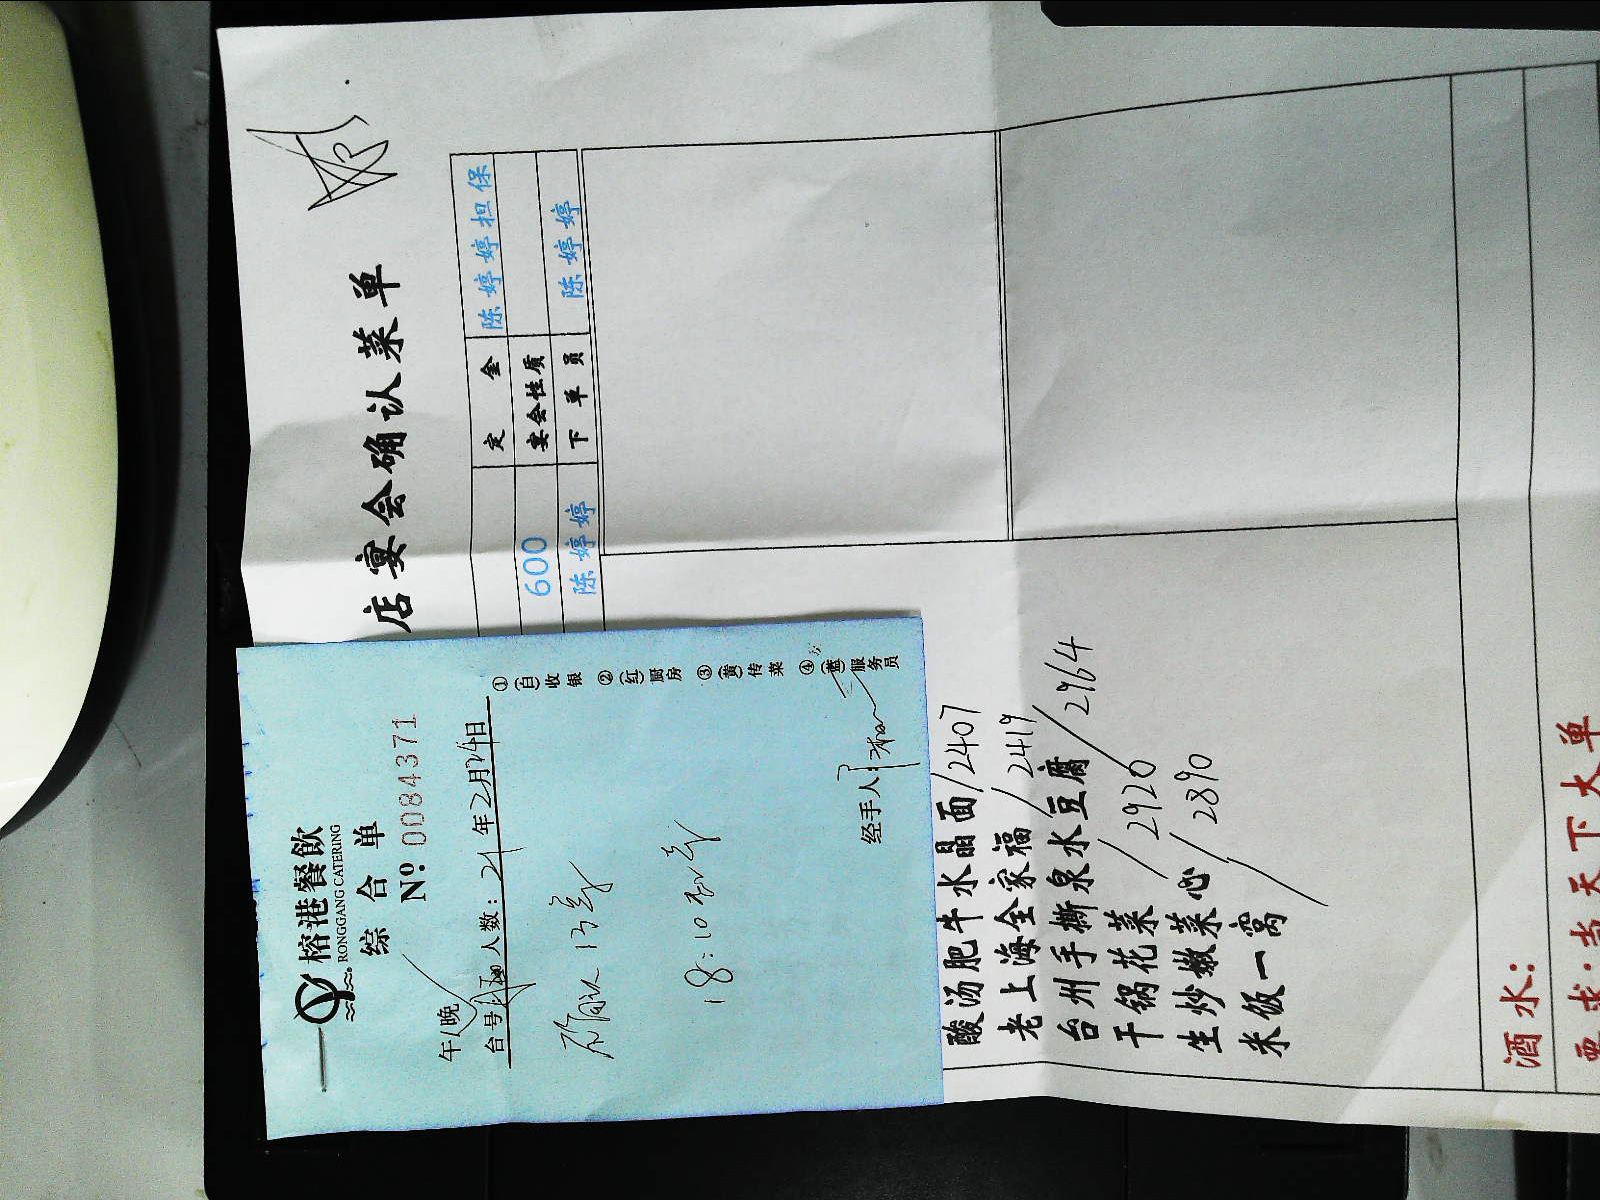 店宴会确认菜单
定金 陈婷婷担保
600 宴会性质
陈婷婷 下单员 陈婷婷
榕港餐飲
RONGGANG CATERING
综合单
Nº 0084371
午/晚
台号 人数: 21年2月24日
确认13号
18:10
经手人:
①(白)收银 ②(红)厨房 ③(黄)传菜 ④(蓝)服务员
酸汤肥牛水晶面/2407
老上海全家福/2419
台州手撕泉水豆腐/2964
干锅花菜/2920
生炒嫩菜心/2890
米饭一窝
酒水:
要求:当天下大单